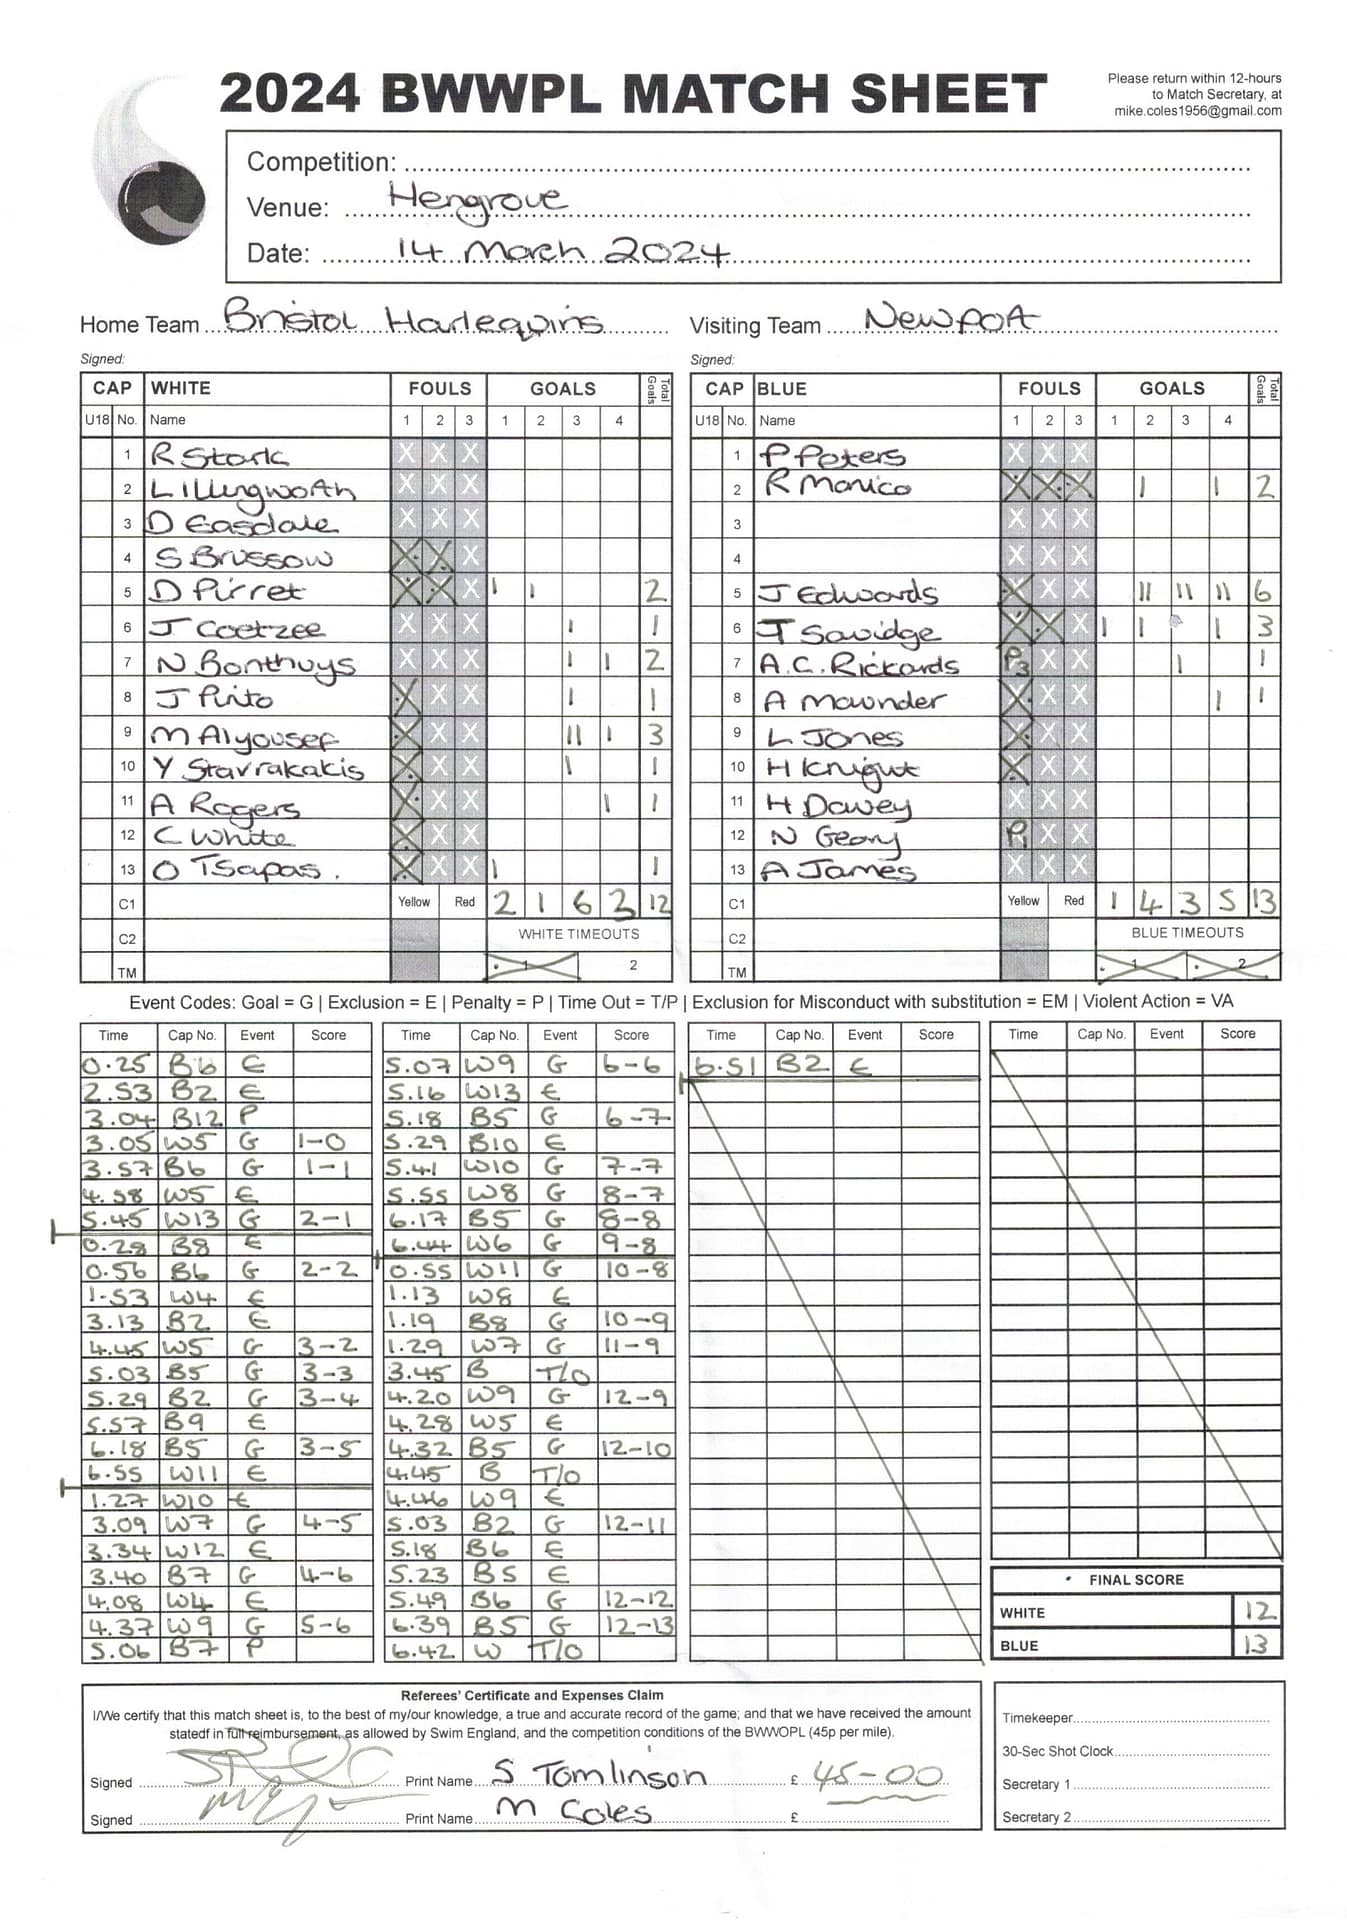 2024 BWWPL MATCH SHEET
Please return within 12-hours
to Match Secretary, at
mike.coles1956@gmail.com
Competition:
Venue: Hengrove
Date: 14 March 2024
Home Team Bristol Harlequins Visiting Team Newport
Signed: Signed:
CAP WHITE FOULS GOALS Total Goals
U18 No. Name 1 2 3 1 2 3 4
1 R Stark X X X
2 L Illingworth X X X
3 D Easdale X X X
4 S Brussow X X X
5 D Pirret X X X 1 1 2
6 J Coetzee X X X 1 1
7 N Bonthuys X X X 1 1 2
8 J Pinto X X X 1 1
9 M Alyousef X X X 11 1 3
10 Y Stavrakakis X X X 1 1
11 A Rogers X X X 1 1
12 C White X X X
13 O Tsapas . X X X 1 1
C1 Yellow Red 2 1 6 3 12
C2 WHITE TIMEOUTS
TM 1 2
CAP BLUE FOULS GOALS Total Goals
U18 No. Name 1 2 3 1 2 3 4
1 P Peters X X X
2 R Monico X X X 1 1 2
3 X X X
4 X X X
5 J Edwards X X X 11 11 11 6
6 J Savidge X X X 1 1 1 3
7 A.C. Rickards P3 X X 1 1
8 A Mawnder X X X 1 1
9 L Jones X X X
10 H Knight X X X
11 H Dawey X X X
12 N Geary P1 X X
13 A James X X X
C1 Yellow Red 1 4 3 5 13
C2 BLUE TIMEOUTS
TM 1 2
Event Codes: Goal = G | Exclusion = E | Penalty = P | Time Out = T/P | Exclusion for Misconduct with substitution = EM | Violent Action = VA
Time Cap No. Event Score
0.25 B6 E
2.53 B2 E
3.04 B12 P
3.05 W5 G 1-0
3.57 B6 G 1-1
4.58 W5 E
5.45 W13 G 2-1
0.28 B8 E
0.56 B6 G 2-2
1.53 W4 E
3.13 B2 E
4.45 W5 G 3-2
5.03 B5 G 3-3
5.29 B2 G 3-4
5.57 B9 E
6.18 B5 G 3-5
6.55 W11 E
1.27 W10 E
3.09 W7 G 4-5
3.34 W12 E
3.40 B7 G 4-6
4.08 W4 E
4.37 W9 G 5-6
5.06 B7 P
Time Cap No. Event Score
5.07 W9 G 6-6
5.16 W13 E
5.18 B5 G 6-7
5.29 B10 E
5.41 W10 G 7-7
5.55 W8 G 8-7
6.17 B5 G 8-8
6.44 W6 G 9-8
0.55 W11 G 10-8
1.13 W8 E
1.19 B8 G 10-9
1.29 W7 G 11-9
3.45 B T/O
4.20 W9 G 12-9
4.28 W5 E
4.32 B5 G 12-10
4.45 B T/O
4.46 W9 E
5.03 B2 G 12-11
5.18 B6 E
5.23 B5 E
5.49 B6 G 12-12
6.39 B5 G 12-13
6.42 W T/O
Time Cap No. Event Score
6.51 B2 E
Time Cap No. Event Score
FINAL SCORE
WHITE 12
BLUE 13
Referees' Certificate and Expenses Claim
I/We certify that this match sheet is, to the best of my/our knowledge, a true and accurate record of the game; and that we have received the amount
statedf in full reimbursement, as allowed by Swim England, and the competition conditions of the BWWOPL (45p per mile).
Signed Print Name S Tomlinson £ 45-00
Signed Print Name M Coles £
Timekeeper
30-Sec Shot Clock
Secretary 1
Secretary 2